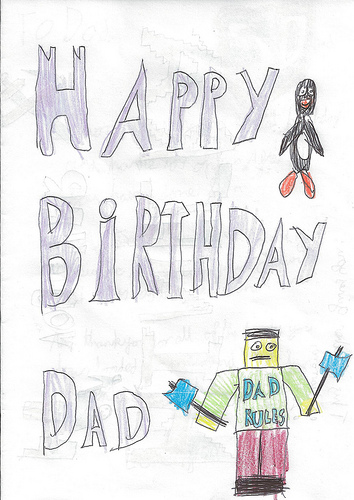 HAPPY
BiRTHDAY
DAD
DAD
RULES